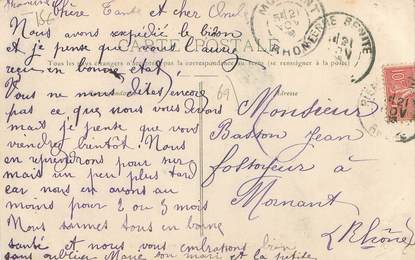 Chère Tante et cher Oncle
Nous avons expédié le bidon
et je pense que vous l'aurez
reçu en bon état,
Vous ne nous dites encore
pas ce que nous vous devons
mais je pense que vous
viendrez bientôt! Nous
en reprendrons pour sur
mais un peu plus tard
car nous en avons au
moins pour 2 ou 3 mois
Nous sommes tous en bonne
santé et nous vous embrassons bien
sans oublier Marie son mari et la petite
CARTE POSTALE
Tous les pays étrangers n'acceptent pas la correspondance au recto (se renseigner à la poste)
Adresse
69
MORNANT
RHONE
PIERRE BENITE
21
Monsieur
Basson Jean
fossoyeur à
Mornant
(Rhône)